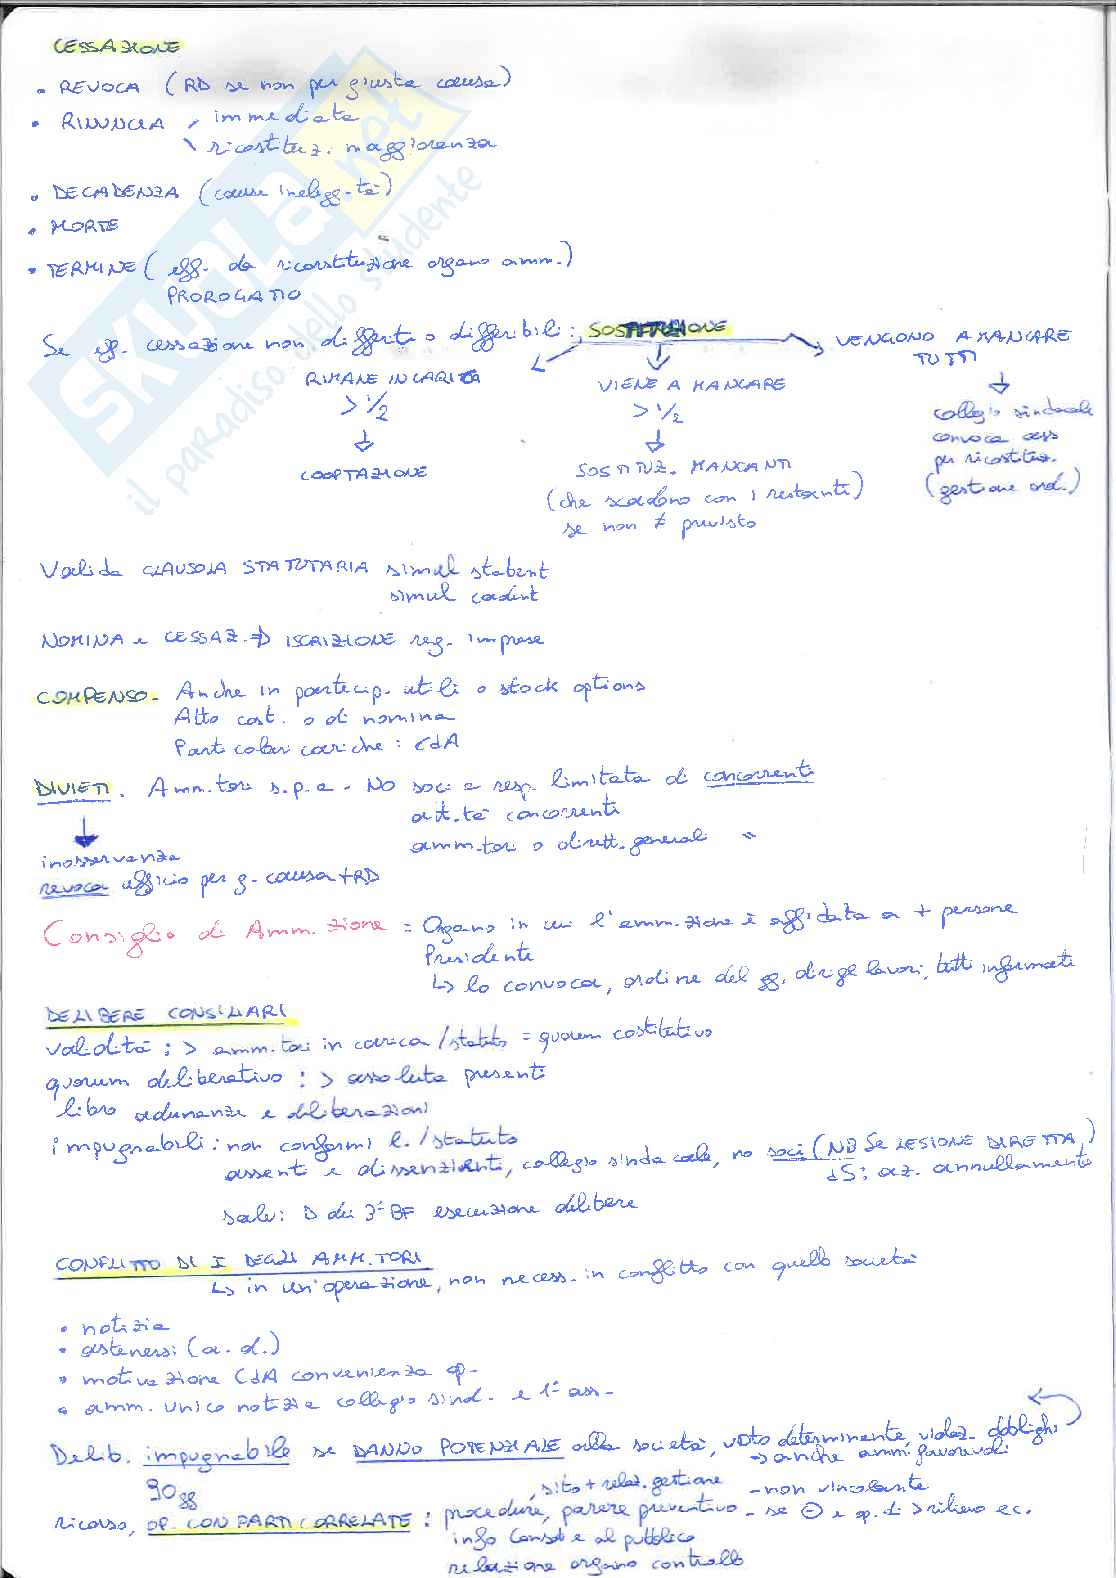 CESSAZIONE
• REVOCA (RD se non per giusta causa)
• RINUNCIA / immediata
\ ricostituz. maggioranza
• DECADENZA (cause inelegg-tà)
• MORTE
• TERMINE (eff. da ricostituzione organo amm.)
PROROGATIO
Se eff. cessazione non differiti o differibili: SOSTITUZIONE
RIMANE IN CARICA
> 1/2
COOPTAZIONE
VIENE A MANCARE
> 1/2
SOSTITUZ. MANCANTI
(che scadono con i restanti)
se non ≠ previsto
VENGONO A MANCARE
TUTTI
collegio sindacale
convoca ass
per ricostituz.
(gestione ord.)
Valida CLAUSOLA STATUTARIA simul stabent
simul cadent
NOMINA e CESSAZ. ⇒ ISCRIZIONE reg. imprese
COMPENSO - Anche in partecip. utili o stock options
Atto cost. o di nomina
Particolari cariche: CdA
DIVIETI. Amm.tori s.p.a - NO soci a resp. limitata di concorrenti
att.tà concorrenti
amm.tori o dirett. generali "
inosservanza
revoca ufficio per g. causa + RD
Consiglio di Amm.zione = Organo in cui l'amm.zione è affidata a + persone
Presidente
↳ lo convoca, ordine del gg, dirige lavori, tutti informati
DELIBERE CONSILIARI
validità: > amm.tori in carica / statuto = quorum costitutivo
quorum deliberativo: > assoluta presenti
libro adunanze e deliberazioni
impugnabili: non conformi l. / statuto
assenti e dissenzienti, collegio sindacale, no soci (NO SE LESIONE DIRETTA)
dS: az. annullamento
salvi: D dei 3i BF esecuzione delibere
CONFLITTO DI I DEGLI AMM.TORI
↳ in un'operazione, non necess. in conflitto con quello società
• notizia
• astenersi (a.d.)
• motivazione CdA convenienza op.
• amm. unico notizia collegio sind. e 1ª ass.
Delib. impugnabile se DANNO POTENZIALE alla società, voto determinante, violaz. obblighi
→ anche amm. favorevoli
90gg
ricorso, OP. CON PARTI CORRELATE: procedure, parere preventivo - se ⊖ e op. di > rilievo ec.
, sito + relaz. gestione
- non vincolante
info Consob e al pubblico
relazione organo controllo
SKUOLA.net
il paradiso dello studente